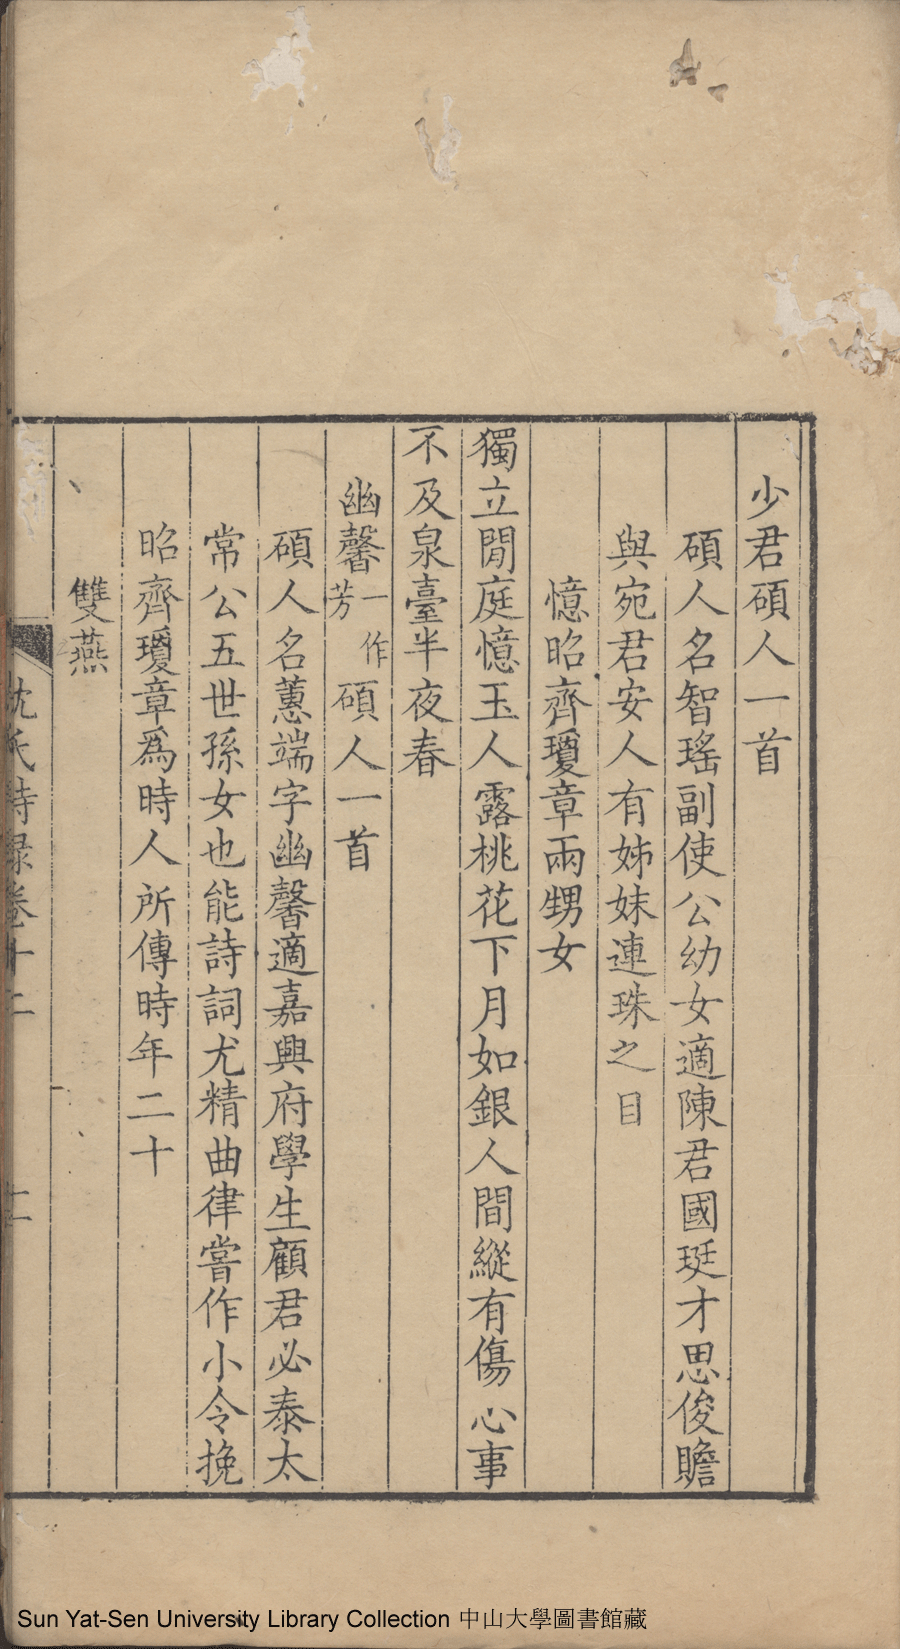 少君碩人一首
碩人名智瑤副使公幼女適陳君國珽才思俊贍
與宛君安人有姊妹連珠之目
憶昭齊瓊章兩甥女
獨立閒庭憶玉人露桃花下月如銀人間縱有傷心事
不及泉臺半夜春
幽馨一作芳碩人一首
碩人名蕙端字幽馨適嘉興府學生顧君必泰太
常公五世孫女也能詩詞尤精曲律嘗作小令挽
昭齊瓊章爲時人所傳時年二十
雙燕
沈氏詩錄卷十二
Sun Yat-Sen University Library Collection 中山大學圖書館藏